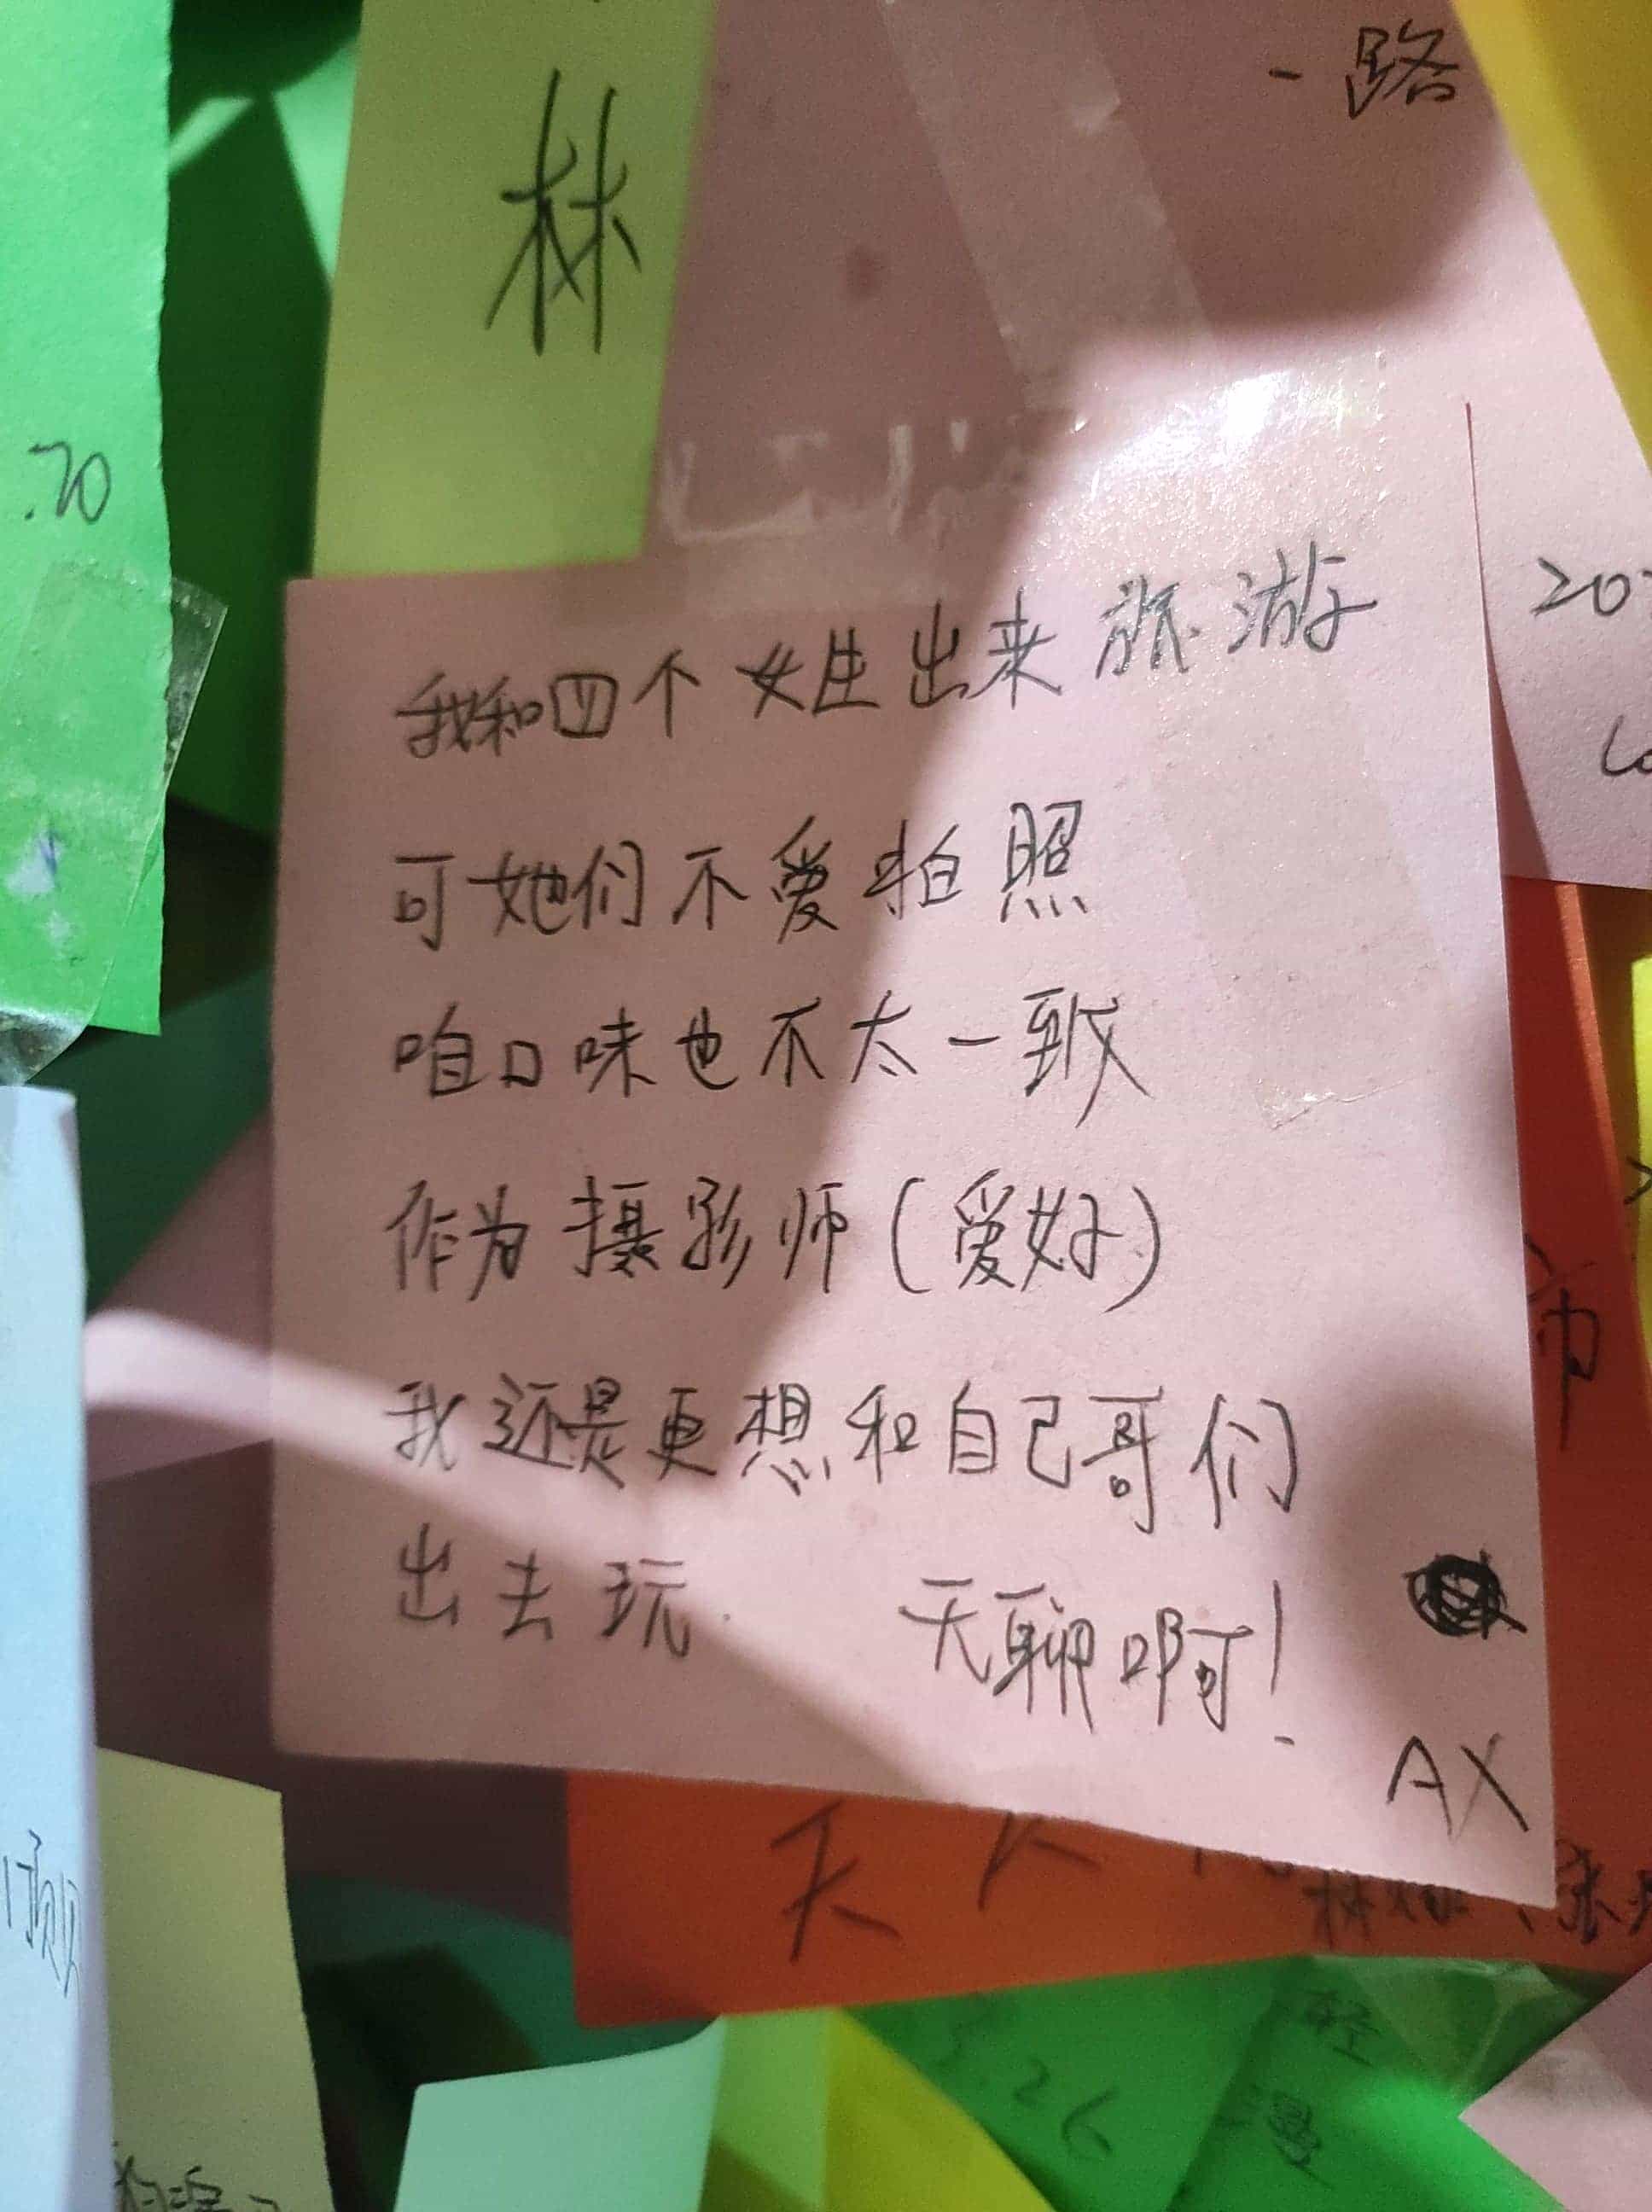 一路
林
.70
我和四个女生出来旅游
可她们不爱拍照
咱口味也不太一致
作为摄影师(爱好)
我还是更想和自己哥们
出去玩. 无聊啊!
AX
天
顺
.26